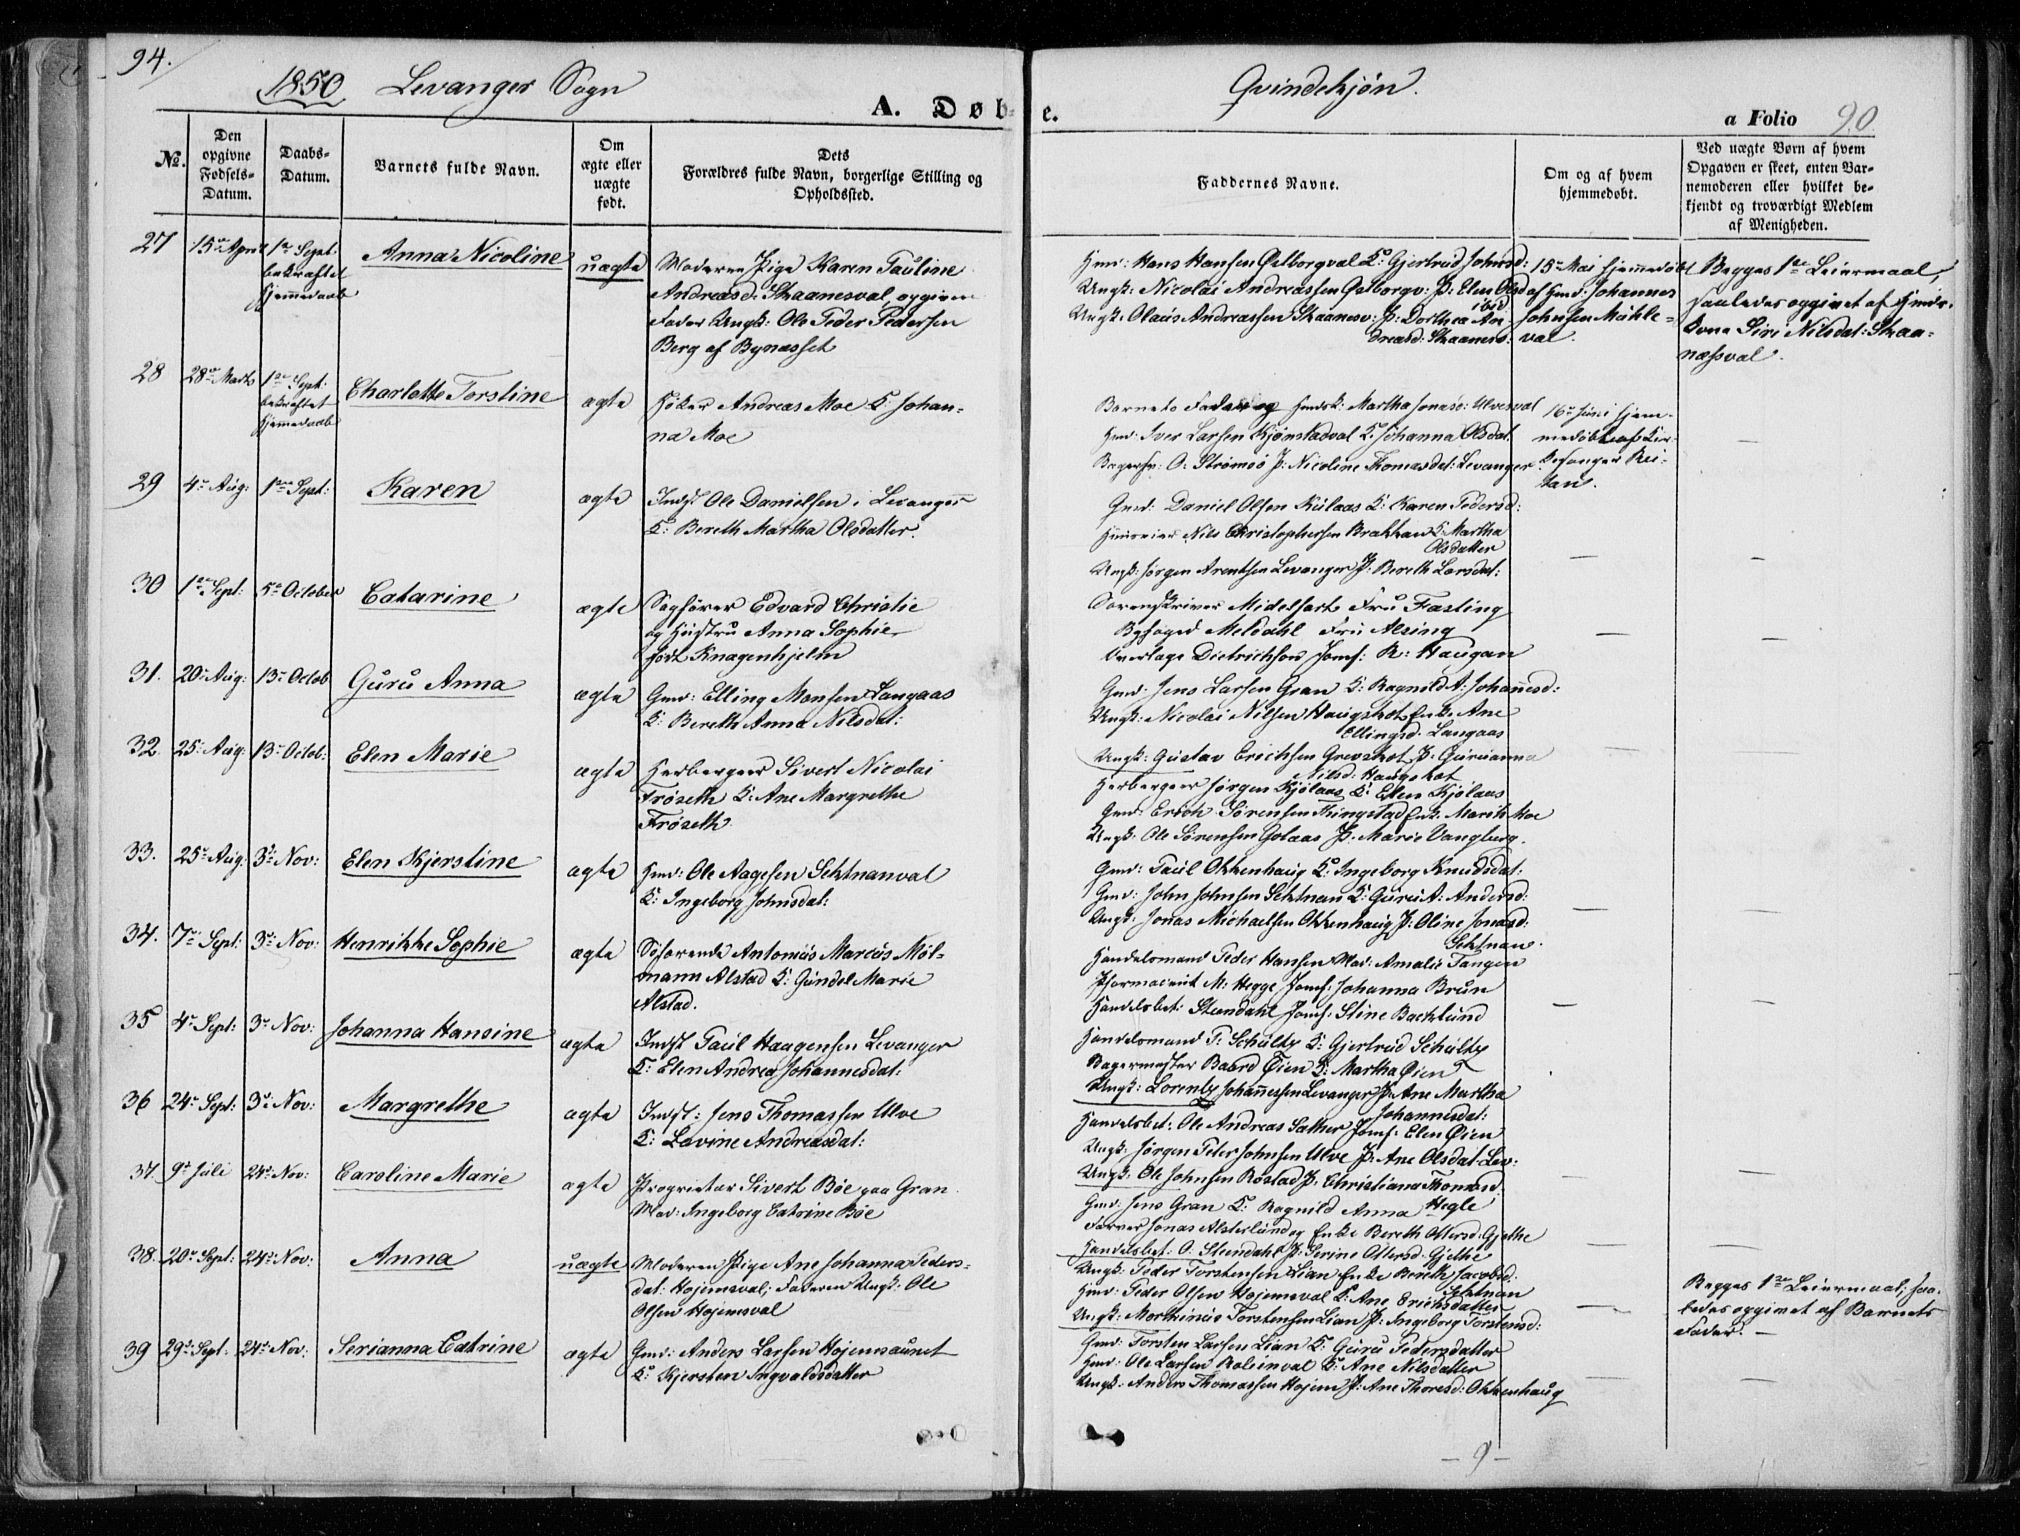 94.
1850 Levanger Sogn
Qvindekjøn.
A. Døb-
e.
a Folio 90
No.
Den opgivne Fødsels-Datum.
Daabs-Datum.
Barnets fulde Navn.
Om ægte eller uægte født.
Dets Forældres fulde Navn, borgerlige Stilling og Opholdssted.
Faddernes Navne.
Om og af hvem hjemmedøbt.
Ved uægte Børn af hvem Opgaven er skeet, enten Barnemoderen eller hvilket bekjendt og troværdigt Medlem af Menigheden.
27 15de April 1ste Sept: bekræftet Hjemmedaab Anna Nicoline uægte
Moderen Pige Karen Pauline
Andreasd: Skaanesval, opgiven
Fader Ungk: Ole Peder Pedersen
Berg af Bynæsset
Hmd: Hans Hansen Østborgval K: Gjertrud Johnsd:
Ungk: Nicolai Andreassen Østborgv: P: Elen Olsd
ibid
Ungk. Olaus Andreassen Skaanesv: P: Dorthea An-
dreasd: Skaanesv:
15de Mai hjemmedøbt
af Hmd: Johannes
Johnsen Mühle-
val.
Begges 1ste Leiermaal,
saaledes opgivet af Hmds
Kone Siri Nilsdat: Skaa-
næsval.
28 28de Marts 1ste Sept: bekræftet Hjemmedaab Charlotte Torstine ægte
Høker Andreas Moe K: Johan-
na Moe
Barnets Fader og Hmdsk: Martha Jonasd: Ulvesval
Hmd: Iver Larsen Kjønstadval K: Johanna Olsdat:
Bagersv: O: Strømsø P: Nicoline Thomasdat: Levanger
16de Juni hjem-
medøbt af Kir-
kesanger Rei-
tan.
29 4de Aug: 1ste Sept: Karen ægte
Indst Ole Danielsen i Levanger
K: Bereth Martha Olsdatter.
Gmd: Daniel Olsen Külaas K: Karen Pedersd:
Huuseier Nils Christophersen Brakhan K: Martha
Olsdatter
Ungk: Jørgen Arentsen Levanger P: Bereth Larsdat:
30 1ste Sept: 5te October Catarine ægte
Sagfører Edvard Christie
og Hustru Anna Sophie
født Knagenhjelm
Sorenskriver Midelfart Fru Fasting
Byfoged Meldahl Fru Alsing
Overlæge Dietrichson Jomf: R: Haugan
31. 20de Aug: 13de Octob Guru Anna ægte
Gmd: Elling Monsen Langaas
K: Bereth Anna Nilsdat:
Gmd: Jens Larsen Gran K: Ragnild A: Johannesd:
Ungk: Nicolai Nilsen Haugskot Enke Ane
Ellingsd: Langaas
Ungk: Gustav Erichsen Grevskot P: Guruanna
Nilsd: Haugskot
32. 25de Aug: 13de Octob: Elen Marie ægte
Herbergeer Sivert Nicolai
Frøseth K: Ane Margrethe
Frøseth.
Herbergeer Jørgen Kjølaas K: Elen Kjølaas
Gmd: Erich Sørensen Ringstad Enk: Marith Moe
Ungk: Ole Sørensen Golaas P: Marie Vangberg.
33. 25de Aug: 3die Nov: Elen Kjerstine ægte
Hmd: Ole Aagesen Sektnanval
K: Ingeborg Johnsdat:
Gmd: Paul Okkenhaug K: Ingeborg Knudsdat:
Gmd: John Johnsen Sektnan K: Guru A: Andersd:
Ungk: Jonas Michaelsen Okkenhaug P: Oline Jonasd:
Sektnan.
34. 7de Sept: 3die Nov: Henrikke Sophie ægte
Søfarende Antonius Marcus Møl-
mann Alstad K: Gundel Marie
Alstad.
Handelsmand Peder Hansen Mad: Amalie Tangen
Pharmaceut M: Hegge Jomf: Johanna Brun
Handelsbet: Steendahl Jomf: Stine Bachlund
35 4de Sept: 3die Nov: Johanna Hansine ægte
Indst Paul Haagensen Levanger
K: Elen Andrea Johannesdat:
Handelsmand P. Schultz K: Gjertrud Schultz
Bagermester Baard Øien K: Martha Øien
Ungk: Lorentz Johannessen Levanger P: Ane Martha
Johannesdat:
36 24de Sept: 3die Nov: Margrethe ægte
Indst: Jens Thomassen Ulve
K: Lavine Andreasdat:
Handelsbet: Ole Andreas Sæther Jomf: Elen Øien
Ungk: Jørgen Peter Johnsen Ulve P: Ane Olsdat Lev:
Ungk: Ole Johnsen Røstad P: Christiana Thomasd:
Hegle
37. 9de Juli 24de Nov: Caroline Marie ægte
Proprietær Sivert Bøe paa Gran
Mad: Ingeborg Catrine Bøe
Gmd: Jens Gran K: Ragnild Anna
Farver Jonas Alsterlund og Enke Bereth Ottersd: Gjethe
Handelsbet: O. Steendahl P: Serine Ottersd: Gjethe
38. 20de Sept: 24de Nov: Anna uægte
Moderen: Pige Ane Johanna Peders-
dat: Hojemsval; Faderen Ungk: Ole
Olsen Hojemsval
Ungk: Peder Torstensen Lian Enke Bereth Jacobsd:
Sektnan
Hmd: Peder Olsen Hojemsval K: Ane Erichsdatter
Ungk: Morthinus Torstensen Lian P: Ingeborg Torstensd:
Begges 1ste Leiermaal; saa-
ledes opgivet af Barnets
Fader. —
39 29de Sept: 24de Nov: Serianna Catrine ægte
Gmd: Anders Larsen Hojemsaunet
K: Kjersten Ingvaldsdatter
Gmd: Torsten Larsen Lian K: Guru Pedersdatter
Hmd: Ole Larsen Roleinval K: Ane Nilsdatter
Ungk: Anders Thomassen Hojem P: Ane Thoresd: Okkenhaug
- 9 -